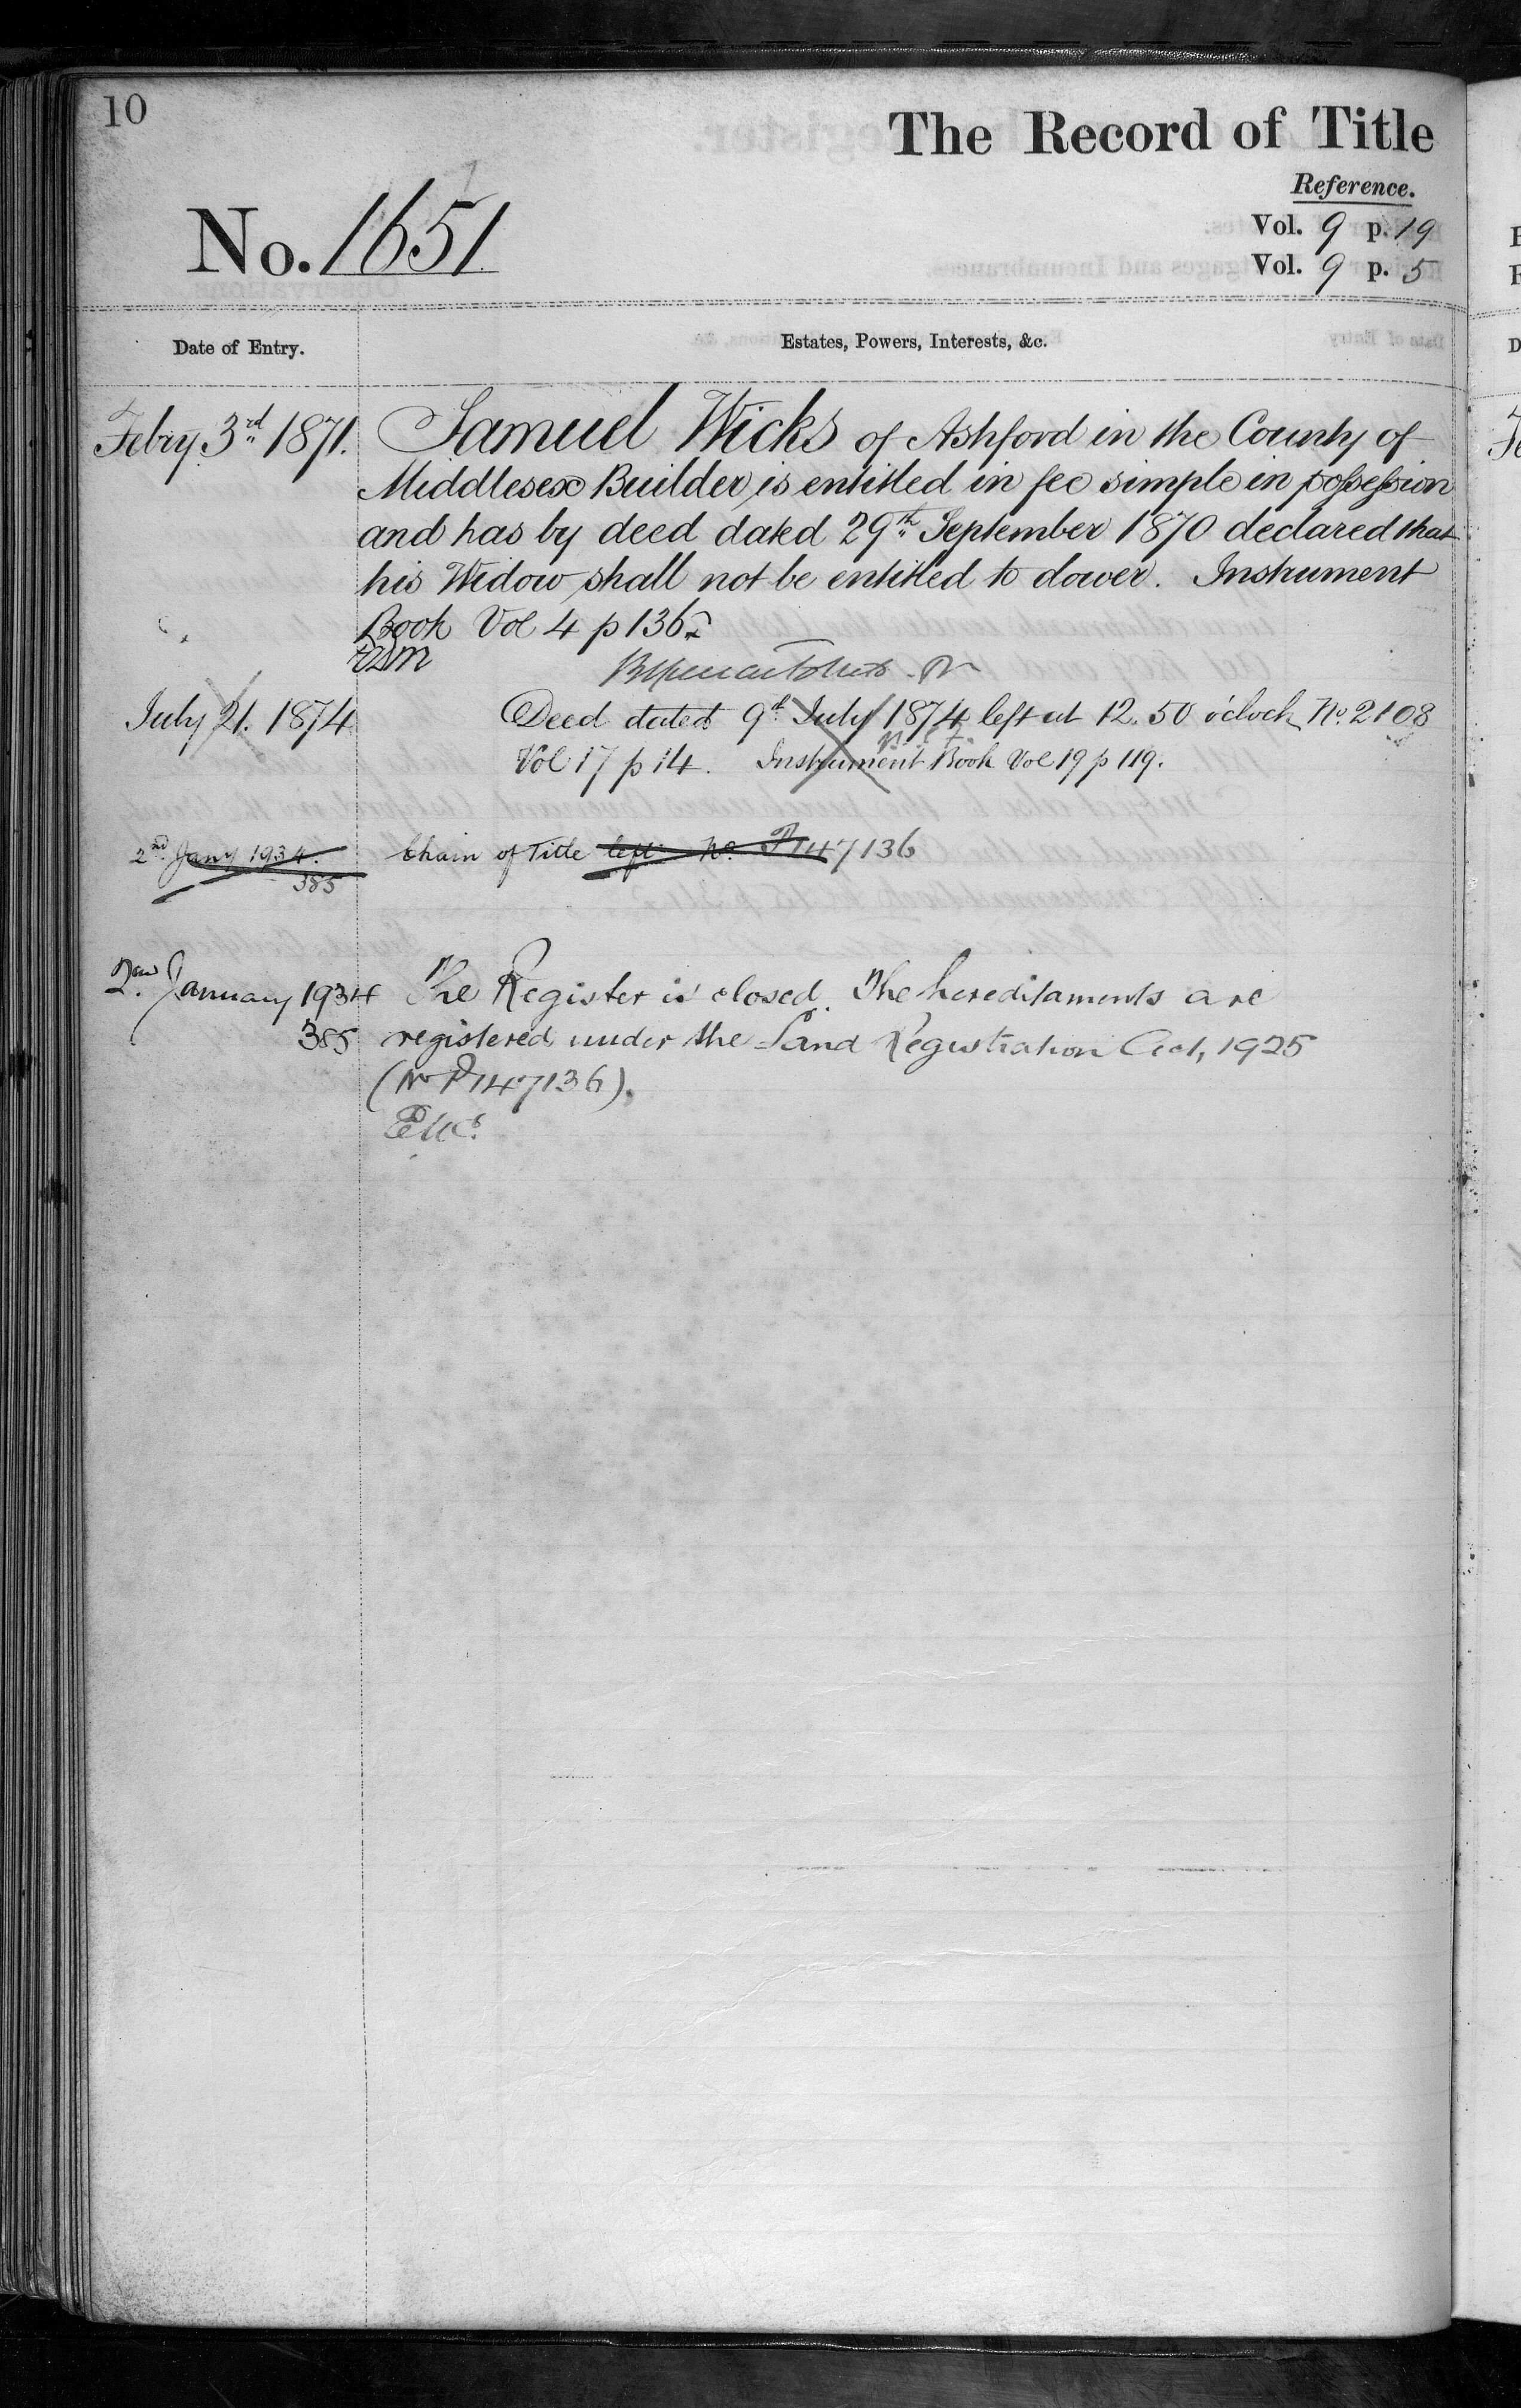 10
The Record of Title
Reference.
No. 1651
Vol. 9 p. 19
Vol. 9 p. 5
Date of Entry.
Estates, Powers, Interests, &c.
Febry. 3rd 1871.
Samuel Wicks of Ashford in the County of
Middlesex Builder is entitled in fee simple in possession
and has by deed dated 29th September 1870 declared that
his Widow shall not be entitled to dower. Instrument
Book Vol 4 p 136
July 21. 1874
Deed dated 9th July 1874 left at 12.50 o'clock No. 2108
Vol 17 p 14. Instrument Book Vol 19 p 119.
2nd Jany 1934.
385
Chain of Title left No. P147136
2nd January 1934
385
The Register is closed. The hereditaments are
registered under the Land Registration Act, 1925
(No P147136).